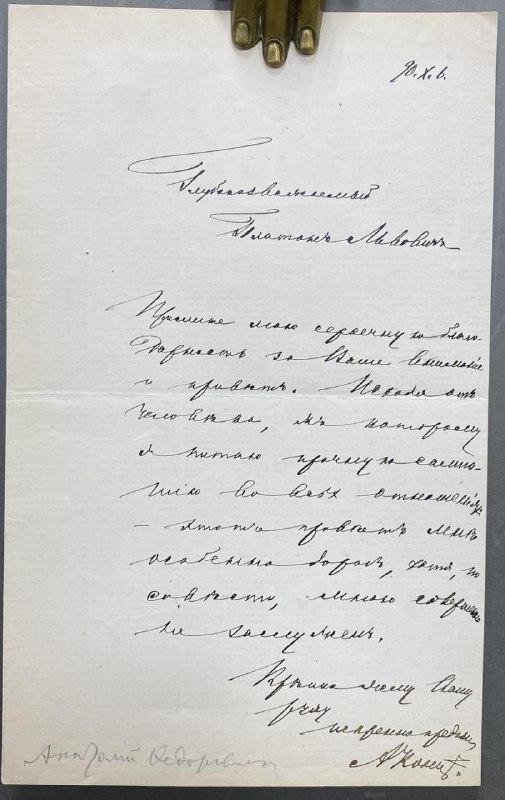 90.X.6.
Глубокоуважаемый
Платонъ Львовичъ
Примите мою сердечную благо-
дарность за Ваше вниманіе
и привѣтъ. Исходя отъ
человѣка, къ которому
я питаю прочную симпа-
тію во всѣхъ отношеніяхъ
— этотъ привѣтъ мнѣ
особенно дорогъ, хотя, по
совѣсти, мною совершенно
не заслуженъ.
Крѣпко жму Вашу
руку
искренно преданный
АКони
Анатолий Федорович